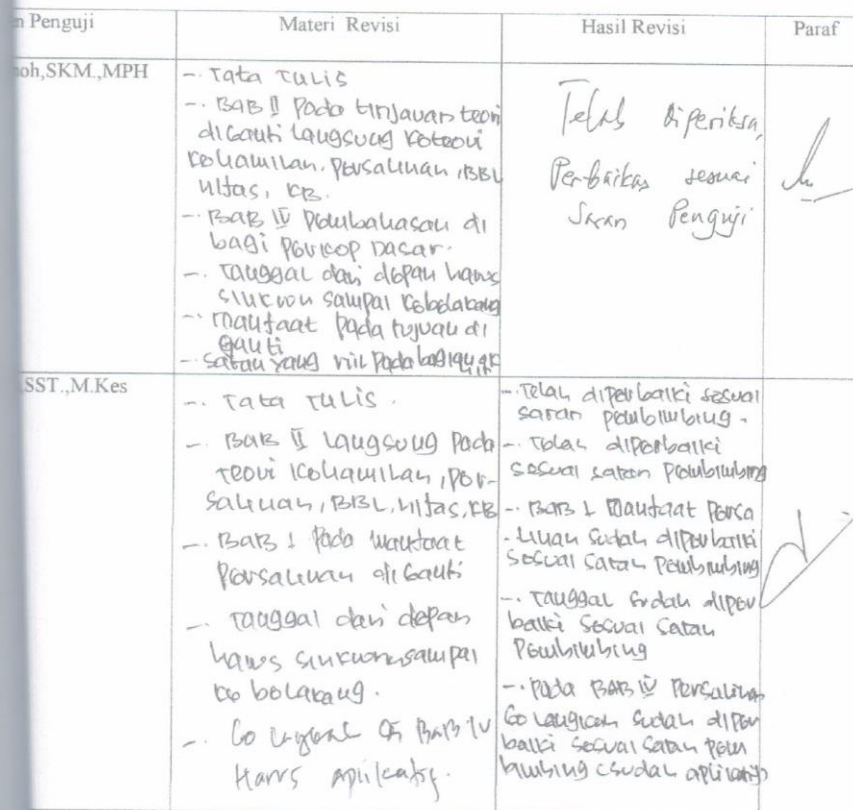 n Penguji
Materi Revisi
Hasil Revisi
Paraf
noh,SKM.,MPH
-. Tata Tulis
-. BAB II Pada tinjauan teori
diganti Langsung keteori
kehamilan, Persalinan, BBL
nifas, KB.
-. BAB IV Pembahasan di
bagi Perkop Dasar.
-. Tanggal dari depan harus
sinkron sampai kebelakang
-. Manfaat pada tujuan di
ganti
-. saran yang riil pada
Telah diperiksa,
Perbaikan sesuai
Saran Penguji
,SST.,M.Kes
-. Tata Tulis.
-. BAB II Langsung Pada
teori Kehamilan, Per-
salinan, BBL, nifas, KB
-. BAB I Pada manfaat
Persalinan diganti
-. Tanggal dari depan
harus sinkron sampai
ke belakang.
-. BAB IV
Harus aplikatif.
-. Telah diperbaiki sesuai
saran pembimbing.
-. Telah diperbaiki
sesuai saran Pembimbing
-. BAB I Manfaat Persa
-linan sudah diperbaiki
sesuai saran Pembimbing
-. Tanggal sudah diper
baiki sesuai saran
Pembimbing
-. Pada BAB IV Persalinan
sudah diper
baiki sesuai saran Pem
bimbing (sudah aplikatif)